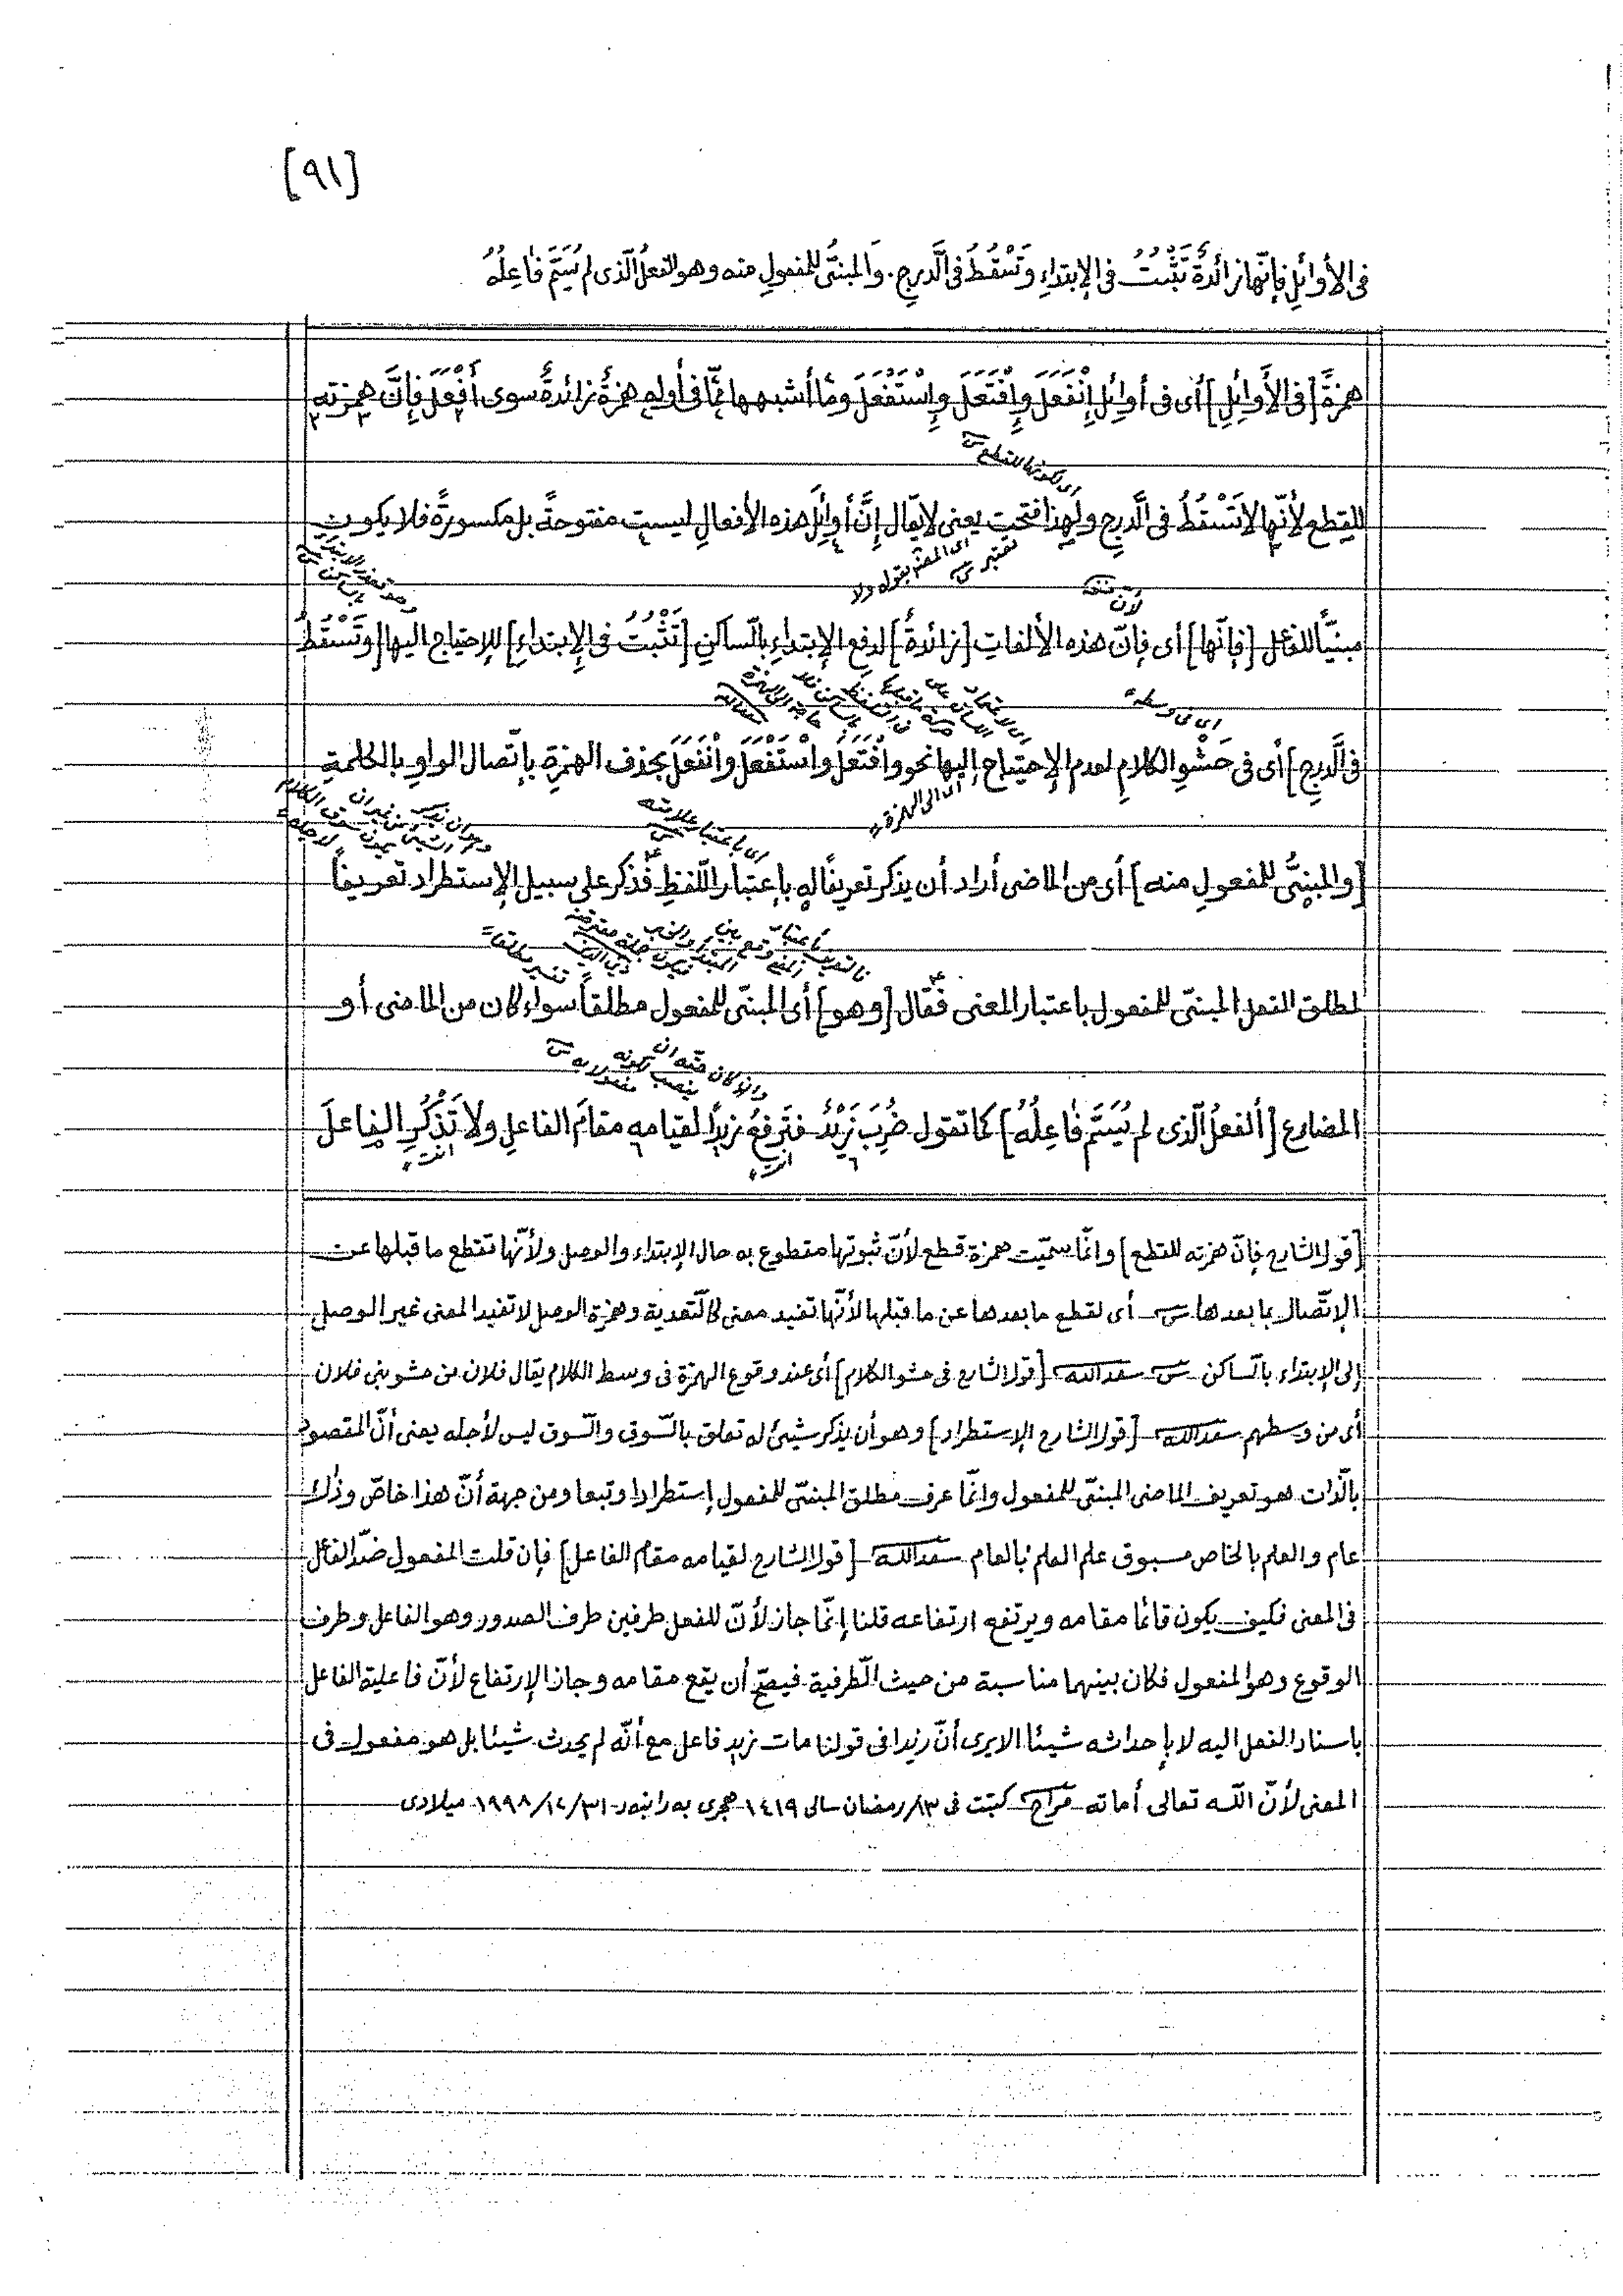 [٩١]
فى الأوائلِ فإنّها زائدةٌ تَثْبُتُ فى الإبتداءِ وتَسْقُطُ فى الَّدرجِ. والمبنىُّ للمفعولِ منه وهو الفعلُ الّذى لم يُسَمَّ فاعِلُهُ
همزةً [فى الأَوائِلِ] أى فى أوائِلِ إنْفَعَلَ وإفْتَعَلَ وإسْتَفْعَلَ وما أشبهها ممّا فى أوله همزةٌ زائدةٌ سوى أَفْعَلَ فإنَّ همزته
للقطع لأنّها لاتَسْقُطُ فى الَّدرجِ ولهذا فتحت يعنى لايقال إنَّ أوائِلَ هذه الأفعالِ ليست مفتوحةً بل مكسورةً فلا يكون
أى لكونها للقطع
مبنيًّا للفاعل [فإنّها] أى فإنّ هذه الألفاتِ [زائدةٌ] لدفع الإبتداءِ بالّساكنِ [تَثْبُتُ فى الإبتداءِ] للإحتياج اليها [وتَسْقُطُ
فى الَّدرجِ] أى فى حَشْوِ الكلامِ لعدم الإحتياج إليها نحو وافْتَعَلَ واسْتَفْعَلَ وانْفَعَلَ بحذف الهمزةِ بإتّصال الواوِ بالكلمةِ
أى فى وسطه
أى الى الهمزة
[والمبنىُّ للمفعولِ منه] أى من الماضى أراد أن يذكر تعريفًا له بإعتبار اللّفظِ فذكر على سبيل الإستطراد تعريفاً
لمطلق الفعل المبنىّ للمفعول باعتبار المعنى فقال [وهو] أى المبنىّ للمفعول مطلقاً سواء كان من الماضى أو
المضارع [الفعلُ الّذى لم يُسَمَّ فاعِلُهُ] كما تقول ضُرِبَ زَيْدٌ فتَرفعُ زيدًا لقيامه مقامَ الفاعلِ ولا تَذْكُرِ الفاعلَ
انت انت
[قول الشارح فإنّ همزته للقطع] وانّما سمّيت همزة قطع لأنّ ثبوتها مقطوع به حال الإبتداء والوصل ولأنّها تقطع ما قبلها عن
الإتّصال بما بعدها س أى لقطع ما بعدها عن ما قبلها لأنّها تفيد معنى كالّتعدية وهمزة الوصل لا تفيد المعنى غير الوصل
إلى الإبتداء بالّساكن س سعدالله [قول الشارح فى حشو الكلام] أى عند وقوع الهمزة فى وسط الكلام يقال فلان من حشو بنى فلان
أى من وسطهم سعدالله [قول الشارح الإستطراد] وهو أن يذكر شيئ له تعلق بالّسوق والّسوق ليس لأجله يعنى أنّ المقصود
بالّذات هو تعريف الماضى المبنىّ للمفعول وانّما عرف مطلق المبنىّ للمفعول إستطرادا وتبعا ومن جهة أنّ هذا خاصّ وذلك
عام والعلم بالخاص مسبوق علم العلم بالعام سعدالله [قول الشارح لقيامه مقام الفاعل] فإن قلت المفعول ضدّ الفاعل
فى المعنى فكيف يكون قائما مقامه ويرتفع ارتفاعه قلنا إنّما جاز لأنّ للفعل طرفين طرف الصدور وهو الفاعل وطرف
الوقوع وهو المفعول فكان بينهما مناسبة من حيث الّطرفية فيصحّ أن يقع مقامه وجاز الإرتفاع لأنّ فاعلية الفاعل
باسناد الفعل اليه لا بإحداثه شيئا الايرى أنّ زيدا فى قولنا مات زيد فاعل مع أنّه لم يحدث شيئا بل هو مفعول فى
المعنى لأنّ الله تعالى أماته مراح كتبت فى ١٣/رمضان سالى ١٤١٩ هجرى بەرانبەر ١٩٩٨/١٢/٣١ ميلادى